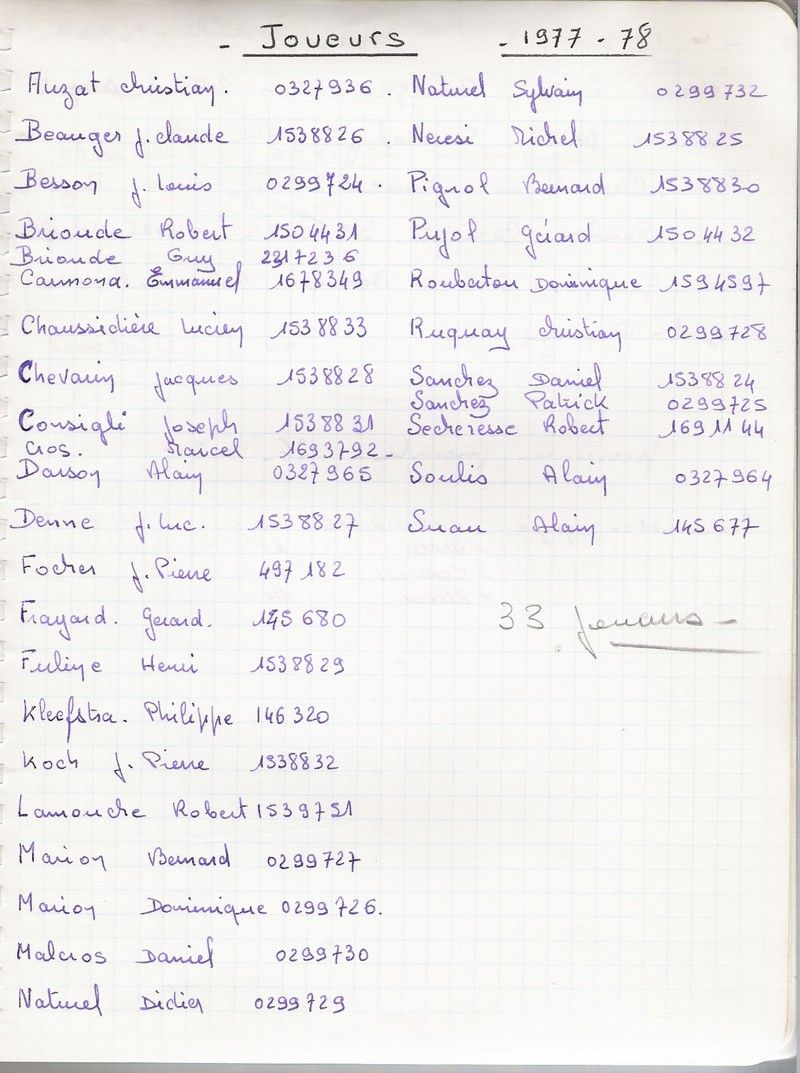 - Joueurs - 1977 - 78
Auzat christian. 0327936.
Beauger J. claude 1538826.
Besson J. Louis 0299724.
Brioude Robert 1504431
Brioude Guy 2217236
Carmona. Emmanuel 1678349
Chaussidière Lucien 1538833
Chevarin Jacques 1538828
Consigli Joseph 1538831
Cros. Marcel 1693792-
Darson Alain 0327965
Denne J. Luc. 1538827
Focher J. Pierre 497182
Frayard. Gerard. 145680
Fuline Henri 1538829
Kleefstra. Philippe 146320
Koch J. Pierre 1538832
Lamouche Robert 1539751
Marion Bernard 0299727
Marion Dominique 0299726.
Malcros Daniel 0299730
Naturel Didier 0299729
Naturel Sylvain 0299732
Neresi Michel 1538825
Pignol Bernard 1538830
Pujol Gérard 1504432
Rouberton Dominique 1594597
Ruquay christian 0299728
Sanchez Daniel 1538824
Sanchez Patrick 0299725
Secheresse Robert 1691144
Soulis Alain 0327964
Suau Alain 145677
33 Joueurs -